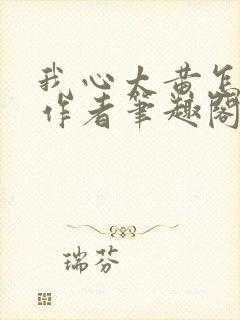 我心大黄怎
作者笔趣阁
瑞芬